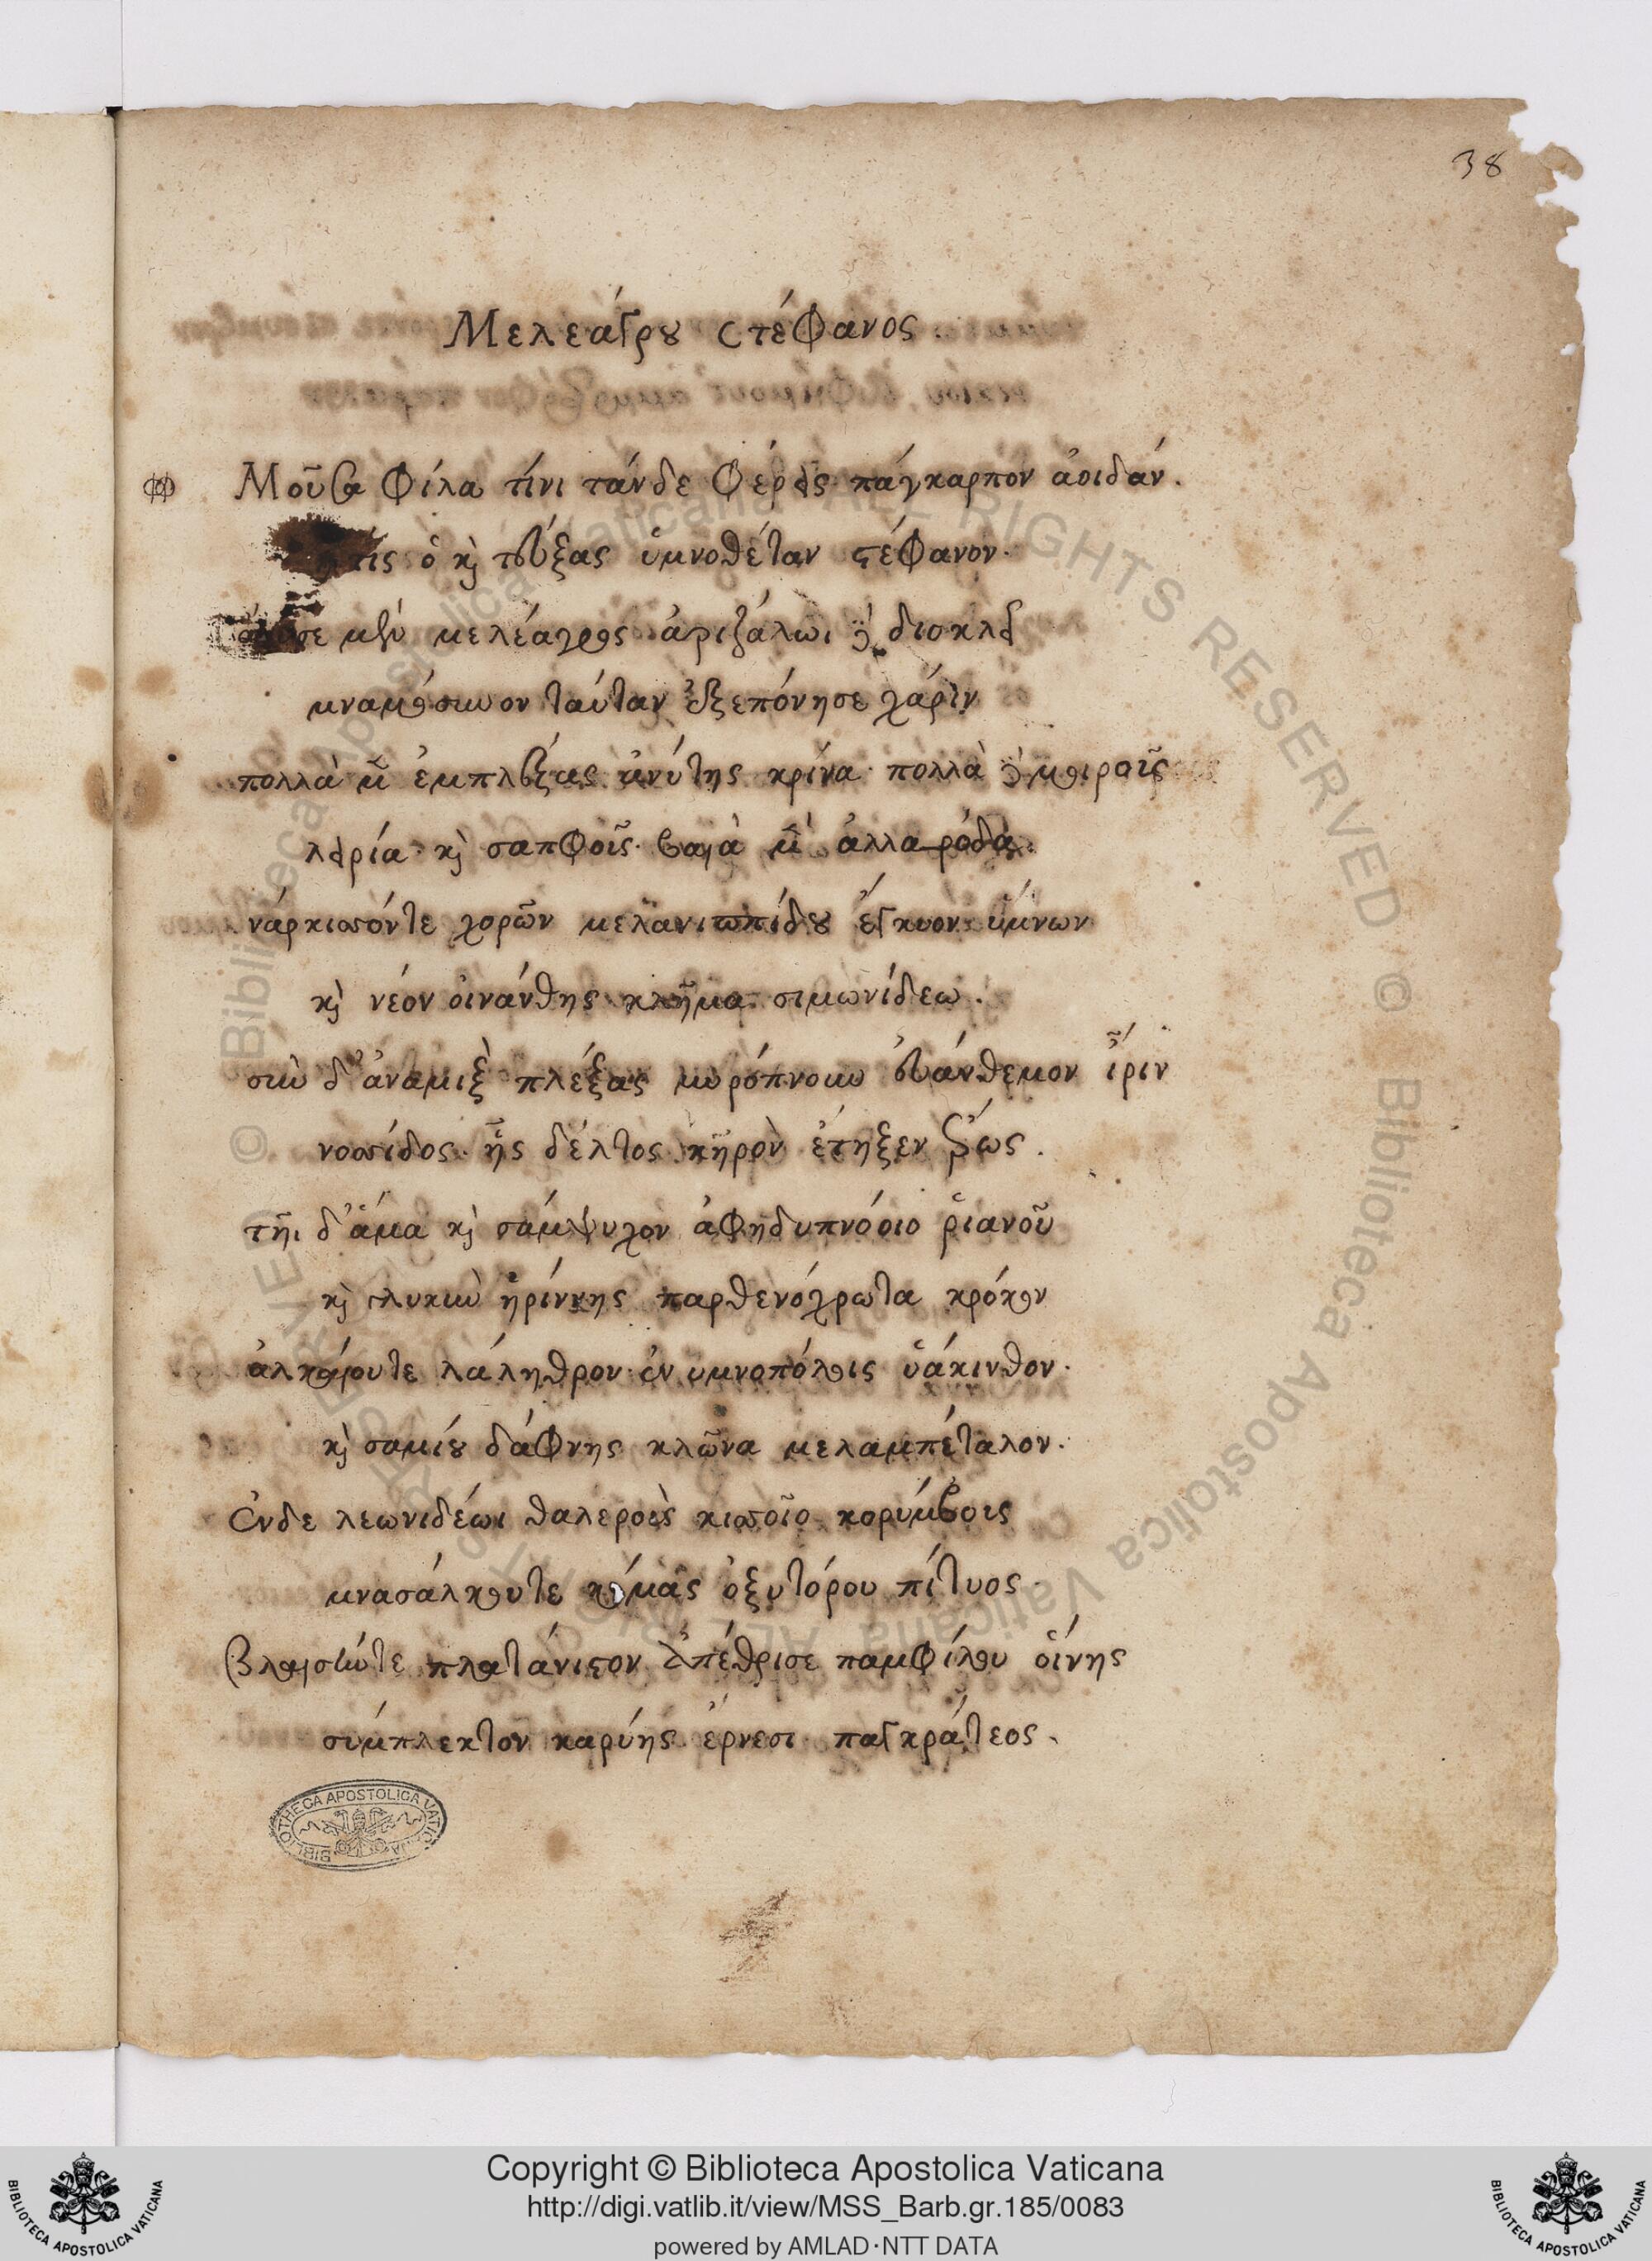 38
Μελεάγρου στέφανος.
Μοῦσα φίλα τίνι τάνδε φέρεις πάγκαρπον ἀοιδάν.
τίς ὁ καὶ τεύξας ὑμνοθέταν στέφανον·
μὲν μελέαγρος ἀριζάλωι δὲ διοκλεῖ
μναμόσυνον ταύταν ἐξεπόνησε χάριν
πολλὰ μὲν ἐμπλέξας ἀνύτης κρίνα· πολλὰ δὲ μοιροῖς
λείρια· καὶ σαπφοῖς· βαιὰ μὲν ἀλλα ρόδα.
νάρκισσόντε χορῶν μελανιππίδου ἔγκυον ὕμνων
καὶ νέον οἰνάνθης κλῆμα σιμωνίδεω.
σὺν δ' ἀναμιξ πλέξας μυρόπνουν εὐάνθεμον ἶριν
νοσσίδος· ἧς δέλτος κηρὸν ἔτηξεν ἔρως.
τῆι δ' ἅμα καὶ σάμψυχον ἀφηδυπνόοιο ῥιανοῦ
καὶ γλυκὺν ἠρίννης παρθενόχρωτα κρόκον
ἀλκαίουτε λάληθρον ἐν υμνοπόλοις ὑάκινθον·
καὶ σαμίου δάφνης κλῶνα μελαμπέταλον·
ἐνδε λεωνιδέωι θαλεροὺς κισσοῖο κορύμβοις
μνασάλκουτε κόμας ὀξυτόρου πίτυος·
βλαισωτε πλατάνιστον ἀπέθρισε παμφίλου οἴνης
σύμπλεκτον καρύης ἔρνεσι παγκράτεος.
BIBLIOTHECA APOSTOLICA VATICANA
© Biblioteca Apostolica Vaticana ALL RIGHTS RESERVED © Biblioteca Apostolica Vaticana ALL RIGHTS RESERVED
Copyright © Biblioteca Apostolica Vaticana
http://digi.vatlib.it/view/MSS_Barb.gr.185/0083
powered by AMLAD·NTT DATA
BIBLIOTECA APOSTOLICA VATICANA
BIBLIOTECA APOSTOLICA VATICANA